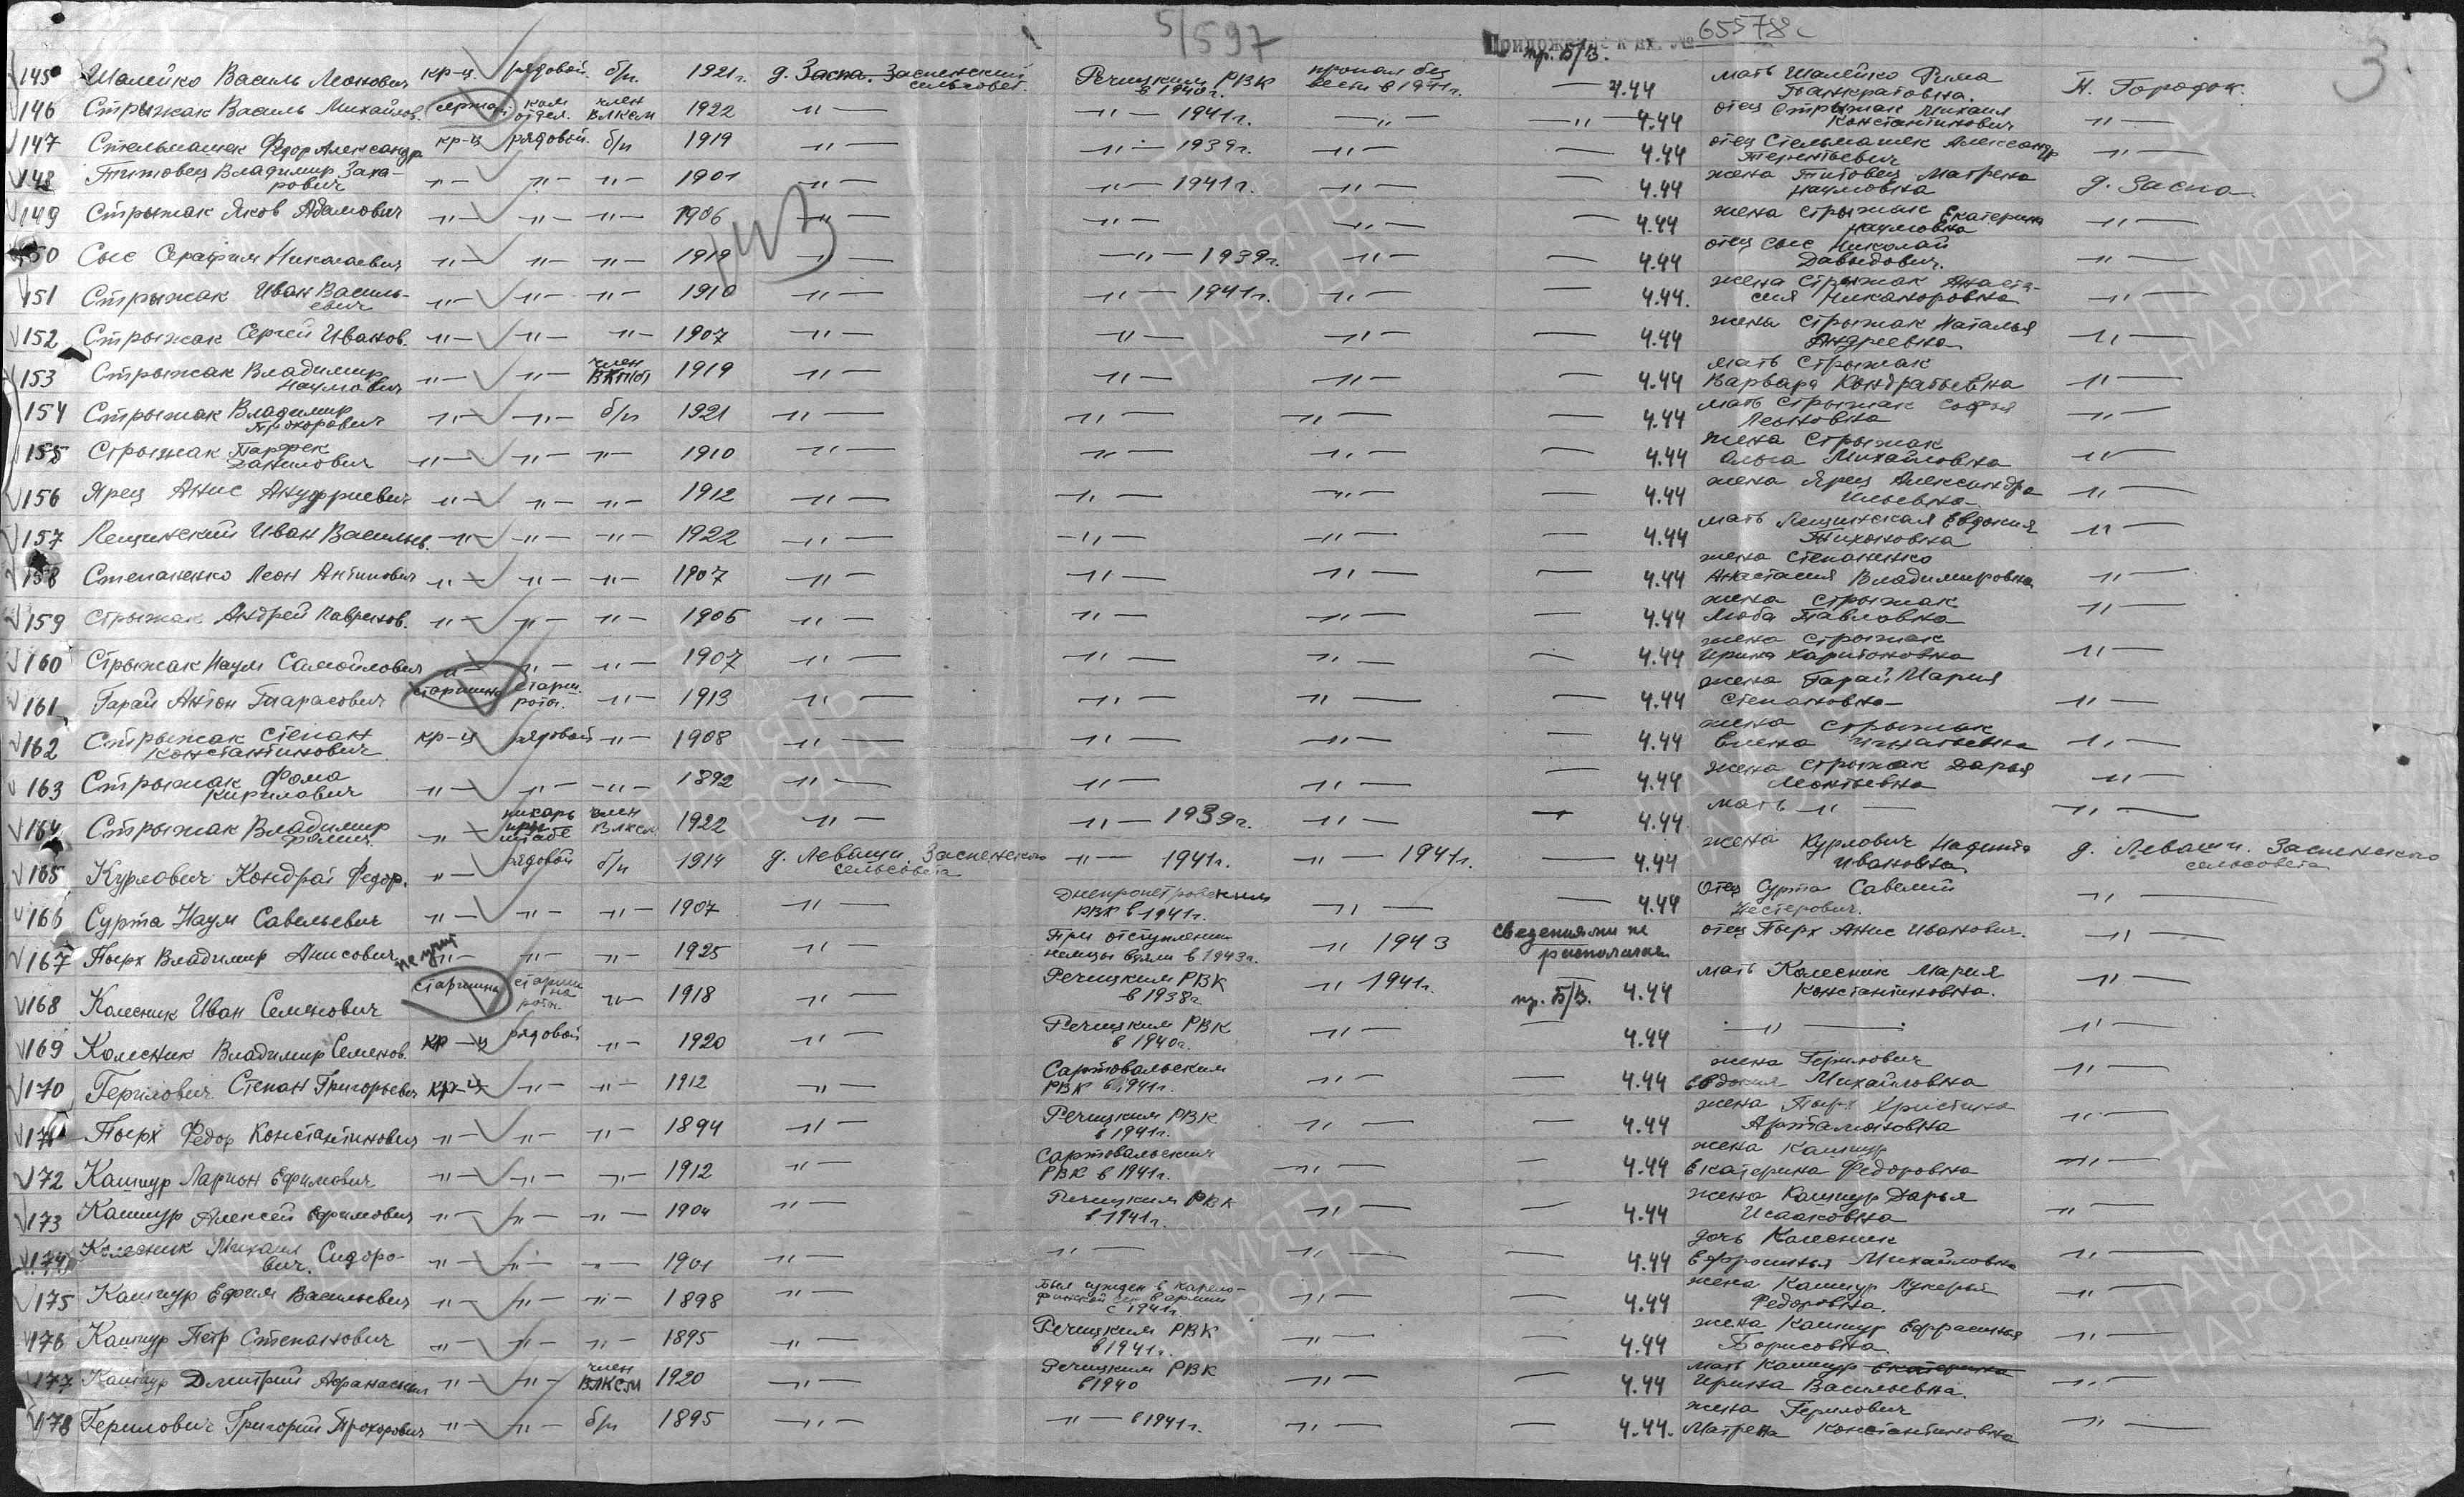 5/597
Приложение к вх. № 655788с
3
пр. Б/В.
145 Шалейко Василь Леонович кр-ц рядовой б/п. 1921г. д. Заспа. Заспенский сельсовет. Речицким РВК в 1940г. пропал без вести в 1941г. — 4.44 мать Шалейко Рима Панкратовна. Н. Городок.
146 Стрыжак Василь Михайлов. сержант ком. отдел. член ВЛКСМ 1922 -"- -"- 1941г. -"- -"- 4.44 отец Стрыжак Михаил Константинович -"-
147 Стельмашек Федор Александр кр-ц рядовой. б/п 1919 -"- -"- 1939г. -"- — 4.44 отец Стельмашек Александр Терентьевич -"-
148 Титовец Владимир Захарович -"- -"- -"- 1901 -"- -"- 1941г. -"- — 4.44 жена Титовец Матрена Наумовна д. Заспа
149 Стрыжак Яков Адамович -"- -"- -"- 1906 -"- -"- -"- — 4.44 жена Стрыжак Екатерина Наумовна -"-
150 Сыс Серафим Николаевич -"- -"- -"- 1919 -"- -"- 1939г. -"- — 4.44 отец Сыс Николай Давыдович. -"-
151 Стрыжак Иван Васильевич -"- -"- -"- 1910 -"- -"- 1941г. -"- — 4.44. жена Стрыжак Анастасия Никаноровна -"-
152 Стрыжак Сергей Иванов. -"- -"- -"- 1907 -"- -"- -"- — 4.44 жена Стрыжак Наталья Андреевна -"-
153 Стрыжак Владимир Наумович -"- -"- член ВКП(б) 1919 -"- -"- -"- — 4.44 мать Стрыжак Варвара Кондратьевна -"-
154 Стрыжак Владимир Прохорович -"- -"- б/п 1921 -"- -"- -"- — 4.44 мать Стрыжак Софья Леоновна -"-
155 Стрыжак Парфек Данилович -"- -"- -"- 1910 -"- -"- -"- — 4.44 жена Стрыжак Ольга Михайловна -"-
156 Ярец Анис Ануфриевич -"- -"- -"- 1912 -"- -"- -"- — 4.44 жена Ярец Александра Ильевна -"-
157 Лещинский Иван Васильев. -"- -"- -"- 1922 -"- -"- -"- — 4.44 мать Лещинская Евдокия Тихоновна -"-
158 Степаненко Леон Антипович -"- -"- -"- 1907 -"- -"- -"- — 4.44 жена Степаненко Анастасия Владимировна -"-
159 Стрыжак Андрей Лавренов. -"- -"- -"- 1905 -"- -"- -"- — 4.44 жена Стрыжак Люба Павловна -"-
160 Стрыжак Наум Самойлович -"- -"- -"- 1907 -"- -"- -"- — 4.44 жена Стрыжак Ирина Харитоновна -"-
161 Гарай Антон Тарасович старшина старш. роты. -"- 1913 -"- -"- -"- — 4.44 жена Гарай Мария Степановна -"-
162 Стрыжак Степан Константинович кр-ц рядовой -"- 1908 -"- -"- -"- — 4.44 жена Стрыжак Елена Игнатьевна -"-
163 Стрыжак Фома Кирилович -"- -"- -"- 1892 -"- -"- -"- — 4.44 жена Стрыжак Дарья Леонтьевна -"-
164 Стрыжак Владимир Фомич -"- писарь при штабе член ВЛКСМ 1922 -"- -"- 1939г. -"- — 4.44 мать -"- -"-
165 Курлович Кондрат Федор. -"- рядовой б/п 1914 д. Леваши. Заспенского сельсовета -"- 1941г. -"- 1941г. — 4.44 жена Курлович Надежда Ивановна д. Леваши. Заспенского сельсовета
166 Сурта Наум Савельевич -"- -"- -"- 1907 -"- Днепропетровским РВК в 1941г. -"- — 4.44 Отец Сурта Савелий Нестерович. -"-
167 Пырх Владимир Анисович -"- -"- -"- 1925 -"- При отступлении немцы взяли в 1943г. -"- 1943 сведениями не располагаем отец Пырх Анис Иванович. -"-
168 Колесник Иван Семенович старшина старшина роты. -"- 1918 -"- Речицким РВК в 1938г. -"- 1941г. пр. Б/В. 4.44 мать Колесник Мария Константиновна. -"-
169 Колесник Владимир Семенов. кр-ц рядовой -"- 1920 -"- Речицким РВК в 1940г. -"- — 4.44 -"- -"-
170 Герилович Степан Григорьевич кр-ц -"- -"- 1912 -"- Сартовальским РВК в 1941г. -"- — 4.44 жена Герилович Евдокия Михайловна -"-
171 Пырх Федор Константинович -"- -"- -"- 1894 -"- Речицким РВК в 1941г. -"- — 4.44 жена Пырх Христина Артамоновна -"-
172 Кашкур Ларион Ефимович -"- -"- -"- 1912 -"- Сартовальским РВК в 1941г. -"- — 4.44 жена Кашкур Екатерина Федоровна -"-
173 Кашкур Алексей Ефимович -"- -"- -"- 1904 -"- Речицким РВК в 1941г. -"- — 4.44 жена Кашкур Дарья Исааковна -"-
174 Колесник Михаил Сидорович. -"- -"- -"- 1901 -"- -"- -"- — 4.44 дочь Колесник Ефросинья Михайловна -"-
175 Кашкур Ефим Васильевич -"- -"- -"- 1898 -"- был сужден в Карело-финской в армии с 1941г. -"- — 4.44 жена Кашкур Лукерья Федоровна. -"-
176 Кашкур Петр Степанович -"- -"- -"- 1895 -"- Речицким РВК в 1941г. -"- — 4.44 жена Кашкур Ефросинья Борисовна -"-
177 Кашкур Дмитрий Афанасьевич -"- -"- член ВЛКСМ 1920 -"- Речицким РВК в 1940 -"- — 4.44 мать Кашкур Екатерина Ирина Васильевна. -"-
178 Герилович Григорий Прохорович -"- -"- б/п 1895 -"- -"- в 1941г. -"- — 4.44. жена Герилович Матрена Константиновна -"-
ПАМЯТЬ НАРОДА